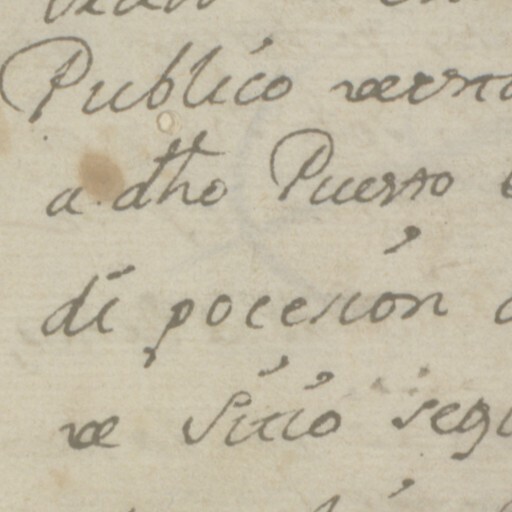 Publico de esta
a dho Puerto
di pocesion
de Sitio seg